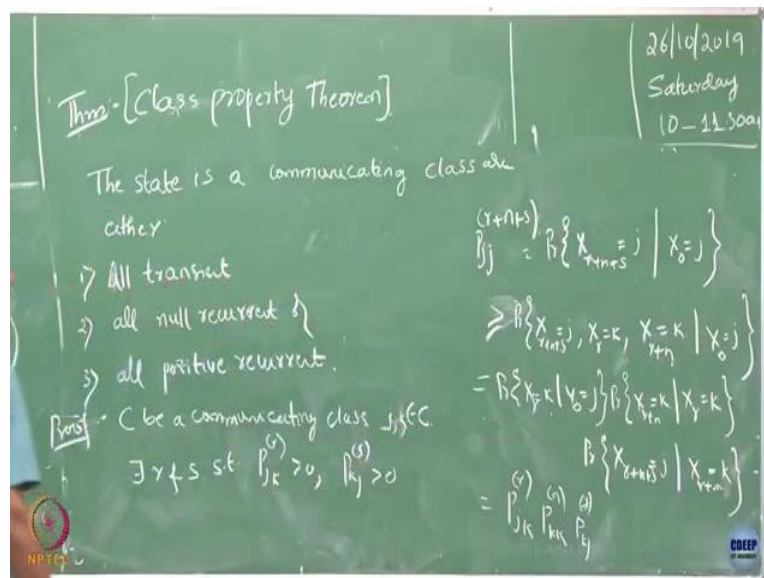 26/10/2019
Saturday
10-11.30am
Thm:- [Class property Theorem]
The state is a communicating class are
either
1) All transient
2) all null recurrent &
3) all positive recurrent.
Proof:- C be a communicating class j,k∈C.
∃ r & s s.t. P_{jk}^{(r)} > 0, P_{kj}^{(s)} > 0
P_{jj}^{(r+n+s)} = Pr{X_{r+n+s} = j | X_0 = j}
≥ Pr{X_{r+n+s} = j, X_r = k, X_{r+n} = k | X_0 = j}
= Pr{X_r = k | X_0 = j} Pr{X_{r+n} = k | X_r = k}
Pr{X_{r+n+s} = j | X_{r+n} = k}
= P_{jk}^{(r)} P_{kk}^{(n)} P_{kj}^{(s)}
NPTEL
CDEEP